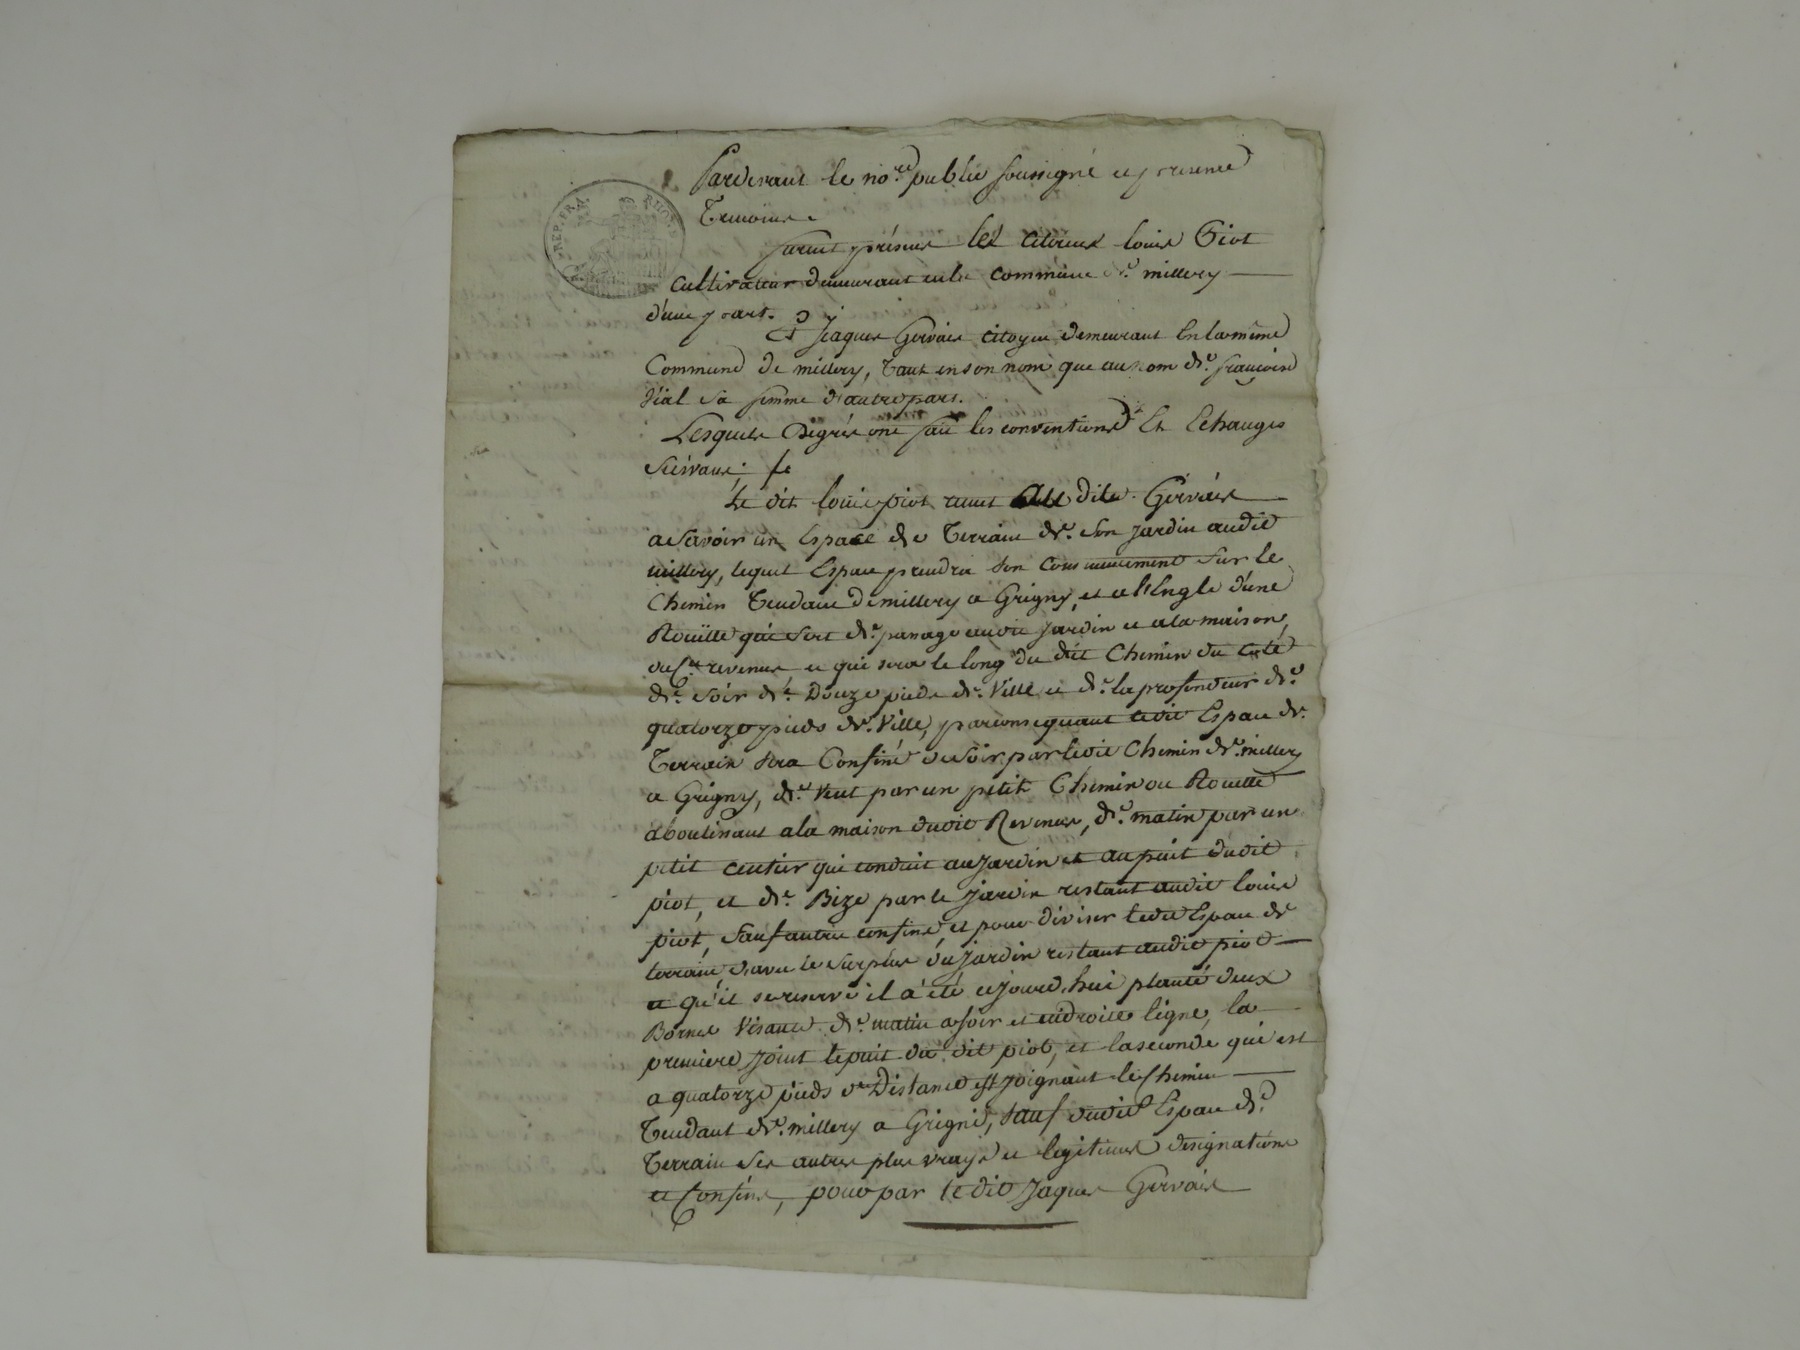 Pardevant le no.re public soussigné et presence
Temoins.
REP. FRA. RHONE
furent présens les citoiens louis Piot
cultivateur demeurant en la commune de. millery
d'une part.
Et Jaques Gervais citoyen demeurant En la même
Commune de millery, tant en son nom que au nom de. françoise
Vial sa femme d'autre part.
Lesquels Degrés ont fait les conventions Et Echanges
Suivans;
Le dit louis piot remet Au dits Gervais
a Savoir un Espace de Terrain de. son jardin audit
millery, lequel Espace prendra son commencement sur le
Chemin Tendant de millery a Grigny, et a l'Engle d'une
Rouïtte qui sert de. passage audit jardin et a la maison,
du C.en revenus et qui sera le long du dit Chemin du coté
de. soir de. Douze pieds de. Ville et de. la profondeur de.
quatorze pieds de. Ville, par consequant ledit Espace de.
Terrain sera Confiné de soir par ledit Chemin de. millery
a Grigny, de. vent par un petit Chemin ou Rouitte
aboutissant a la maison dudit Revenus, de. matin par un
petit centier qui conduit au jardin et au puit dudit
piot, et de. Bize par le jardin restant audit louis
piot, sauf autres confins, et pour diviser ledit Espace de
terrain d'avec le surplus du jardin restant audit piot
et qu'il se reserve il a été cejourd'hui planté deux
Bornes Visants de. matin a soir et en droite ligne, la
premiere joint le puit du dit piot, et la seconde qui est
a quatorze pieds de Distance est joignant le Chemin
Tendant de. millery a Grigni, sauf dudit Espace de.
Terrain ses autres plus vrayes et legitimes designations
et Confins, pour par le dit Jaques Gervais